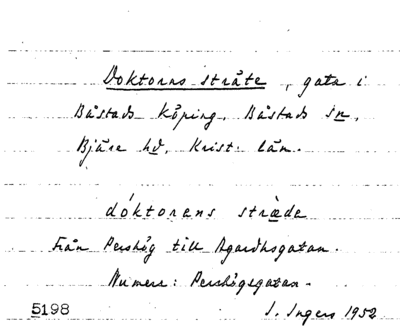 Doktorns stråte, gata i
Båstads köping, Båstads sn,
Bjäre hd, Krist. län.
dóktorens stræ̀de
Från Pershög till Agardhsgatan.
Numera: Pershögsgatan.
5198 I. Ingers 1952